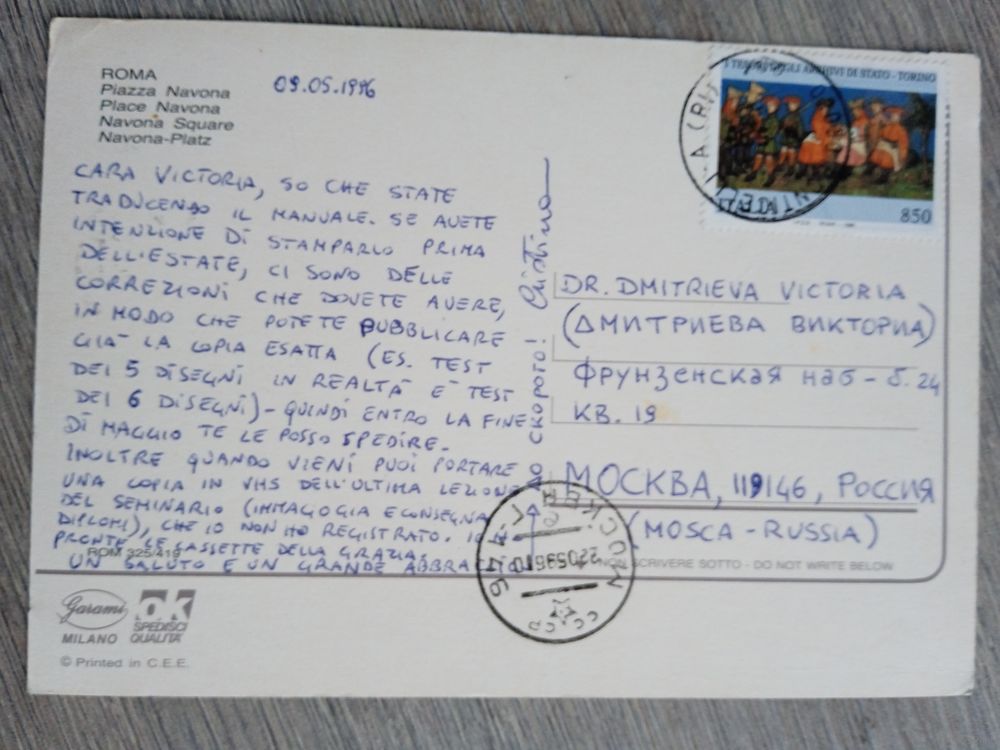 ROMA
Piazza Navona
Place Navona
Navona Square
Navona-Platz
09.05.1996
I TESORI DEGLI ARCHIVI DI STATO - TORINO
ITALIA
850
CARA VICTORIA, SO CHE STATE
TRADUCENDO IL MANUALE. SE AVETE
INTENZIONE DI STAMPARLO PRIMA
DELL'ESTATE, CI SONO DELLE
CORREZIONI CHE DOVETE AVERE,
IN MODO CHE POTETE PUBBLICARE
GIA' LA COPIA ESATTA (ES. TEST
DEI 5 DISEGNI IN REALTÀ E' TEST
DEI 6 DISEGNI) - QUINDI ENTRO LA FINE
DI MAGGIO TE LE POSSO SPEDIRE.
INOLTRE QUANDO VIENI PUOI PORTARE
UNA COPIA IN VHS DELL'ULTIMA LEZIONE
DEL SEMINARIO (IMMAGOGIA E CONSEGNA
DIPLOMI), CHE IO NON HO REGISTRATO. IO HO
PRONTE LE CASSETTE DELLA GRAZIA.
UN SALUTO E UN GRANDE ABBRACCIO
ДО СКОРОГО! Cristina
DR. DMITRIEVA VICTORIA
(ДМИТРИЕВА ВИКТОРИА)
ФРУНЗЕНСКАЯ НАБ - Б. 24
КВ. 19
МОСКВА, 119146, РОССИЯ
(MOSCA - RUSSIA)
ROM 325/419
NON SCRIVERE SOTTO - DO NOT WRITE BELOW
МОСКВА
СССР
Garami
MILANO
OK
SPEDISCI
QUALITA'
© Printed in C.E.E.